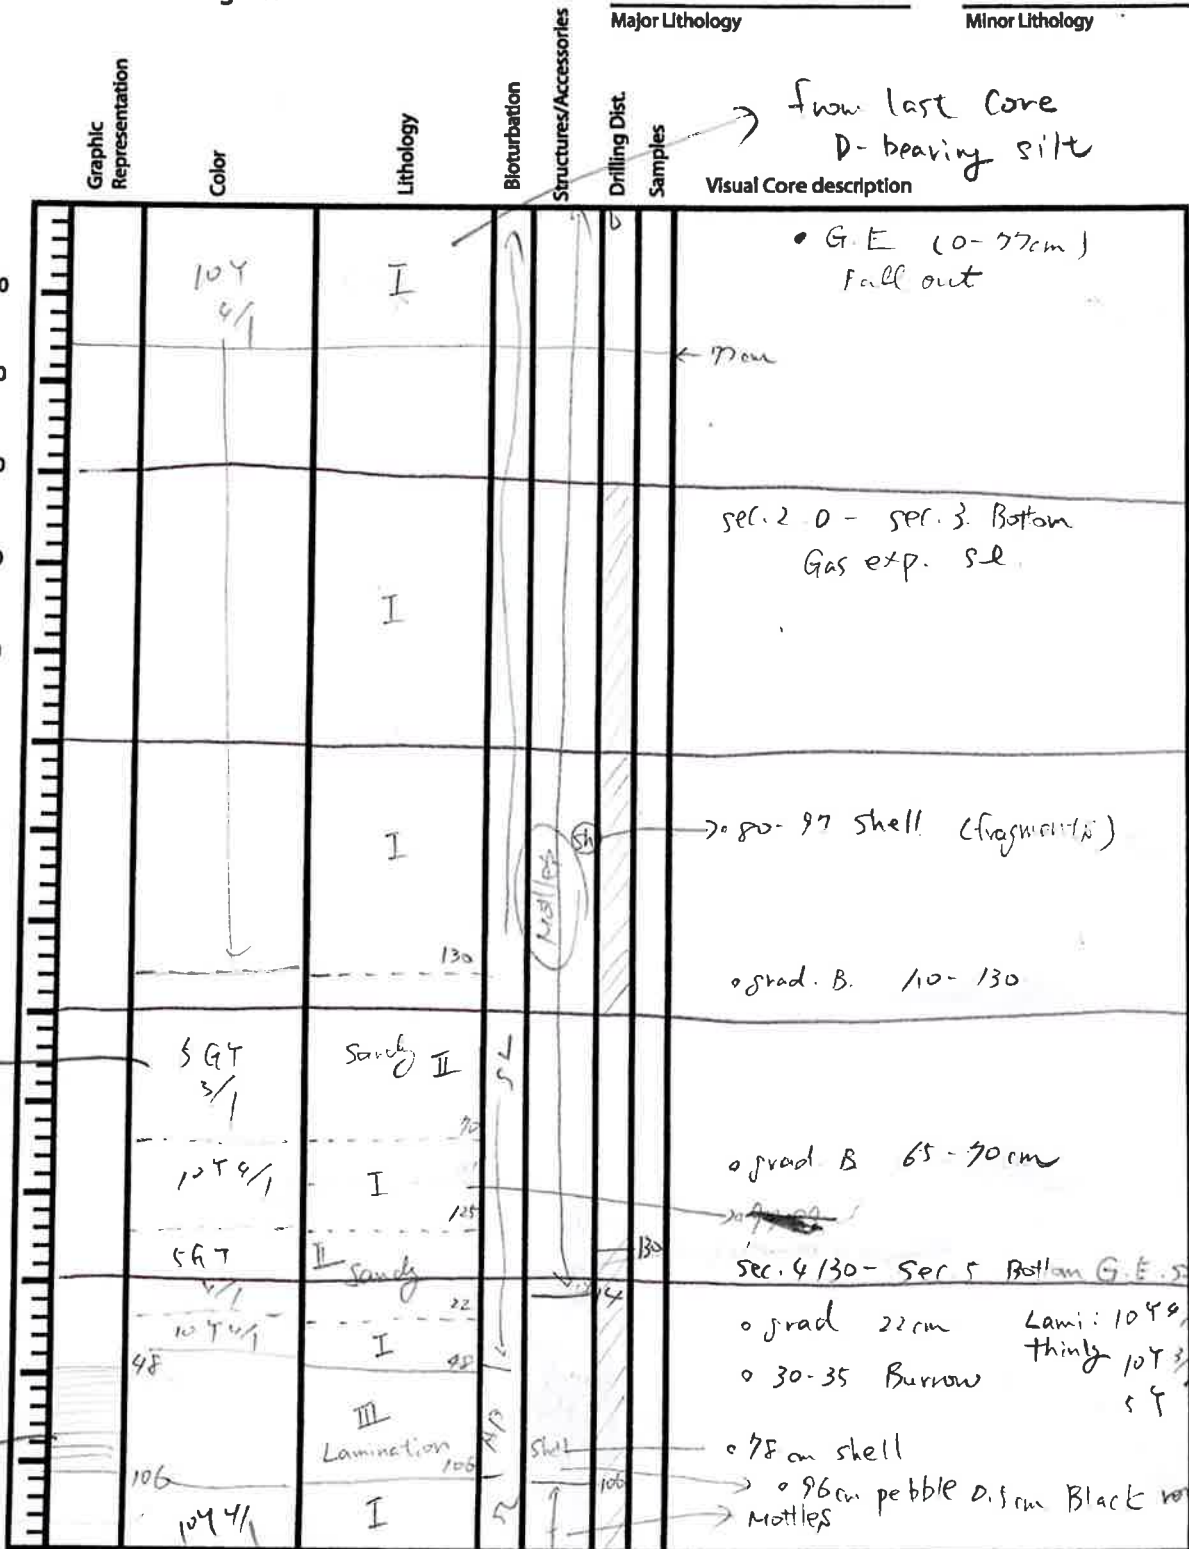 Major Lithology
Minor Lithology
Graphic Representation
Color
Lithology
Bioturbation
Structures/Accessories
Drilling Dist.
Samples
Visual Core description
from last Core
D-bearing silt
10Y
4/1
I
b
• G.E (0-77cm)
Fall out
← 77cm
I
sec. 2 0 - sec. 3. Bottom
Gas exp. sl.
I
Mottles
Sh
80-97 shell (fragments)
130
• grad. B. 110-130
5GY
3/1
Sandy II
SL
70
10Y 4/1
I
125
• grad B 65-70cm
5GY
4/1
II
Sandy
130
Sec. 4 130 - Sec 5 Bottom G.E.
14
22
10Y 4/1
I
48
48
• grad 22cm
• 30-35 Burrow
Lami: 10Y 4/
thinly 10Y 3/
5Y
III
Lamination
106
106
Shell
106
• 78 cm shell
• 96cm pebble 0.5cm Black
Mottles
10Y 4/1
I